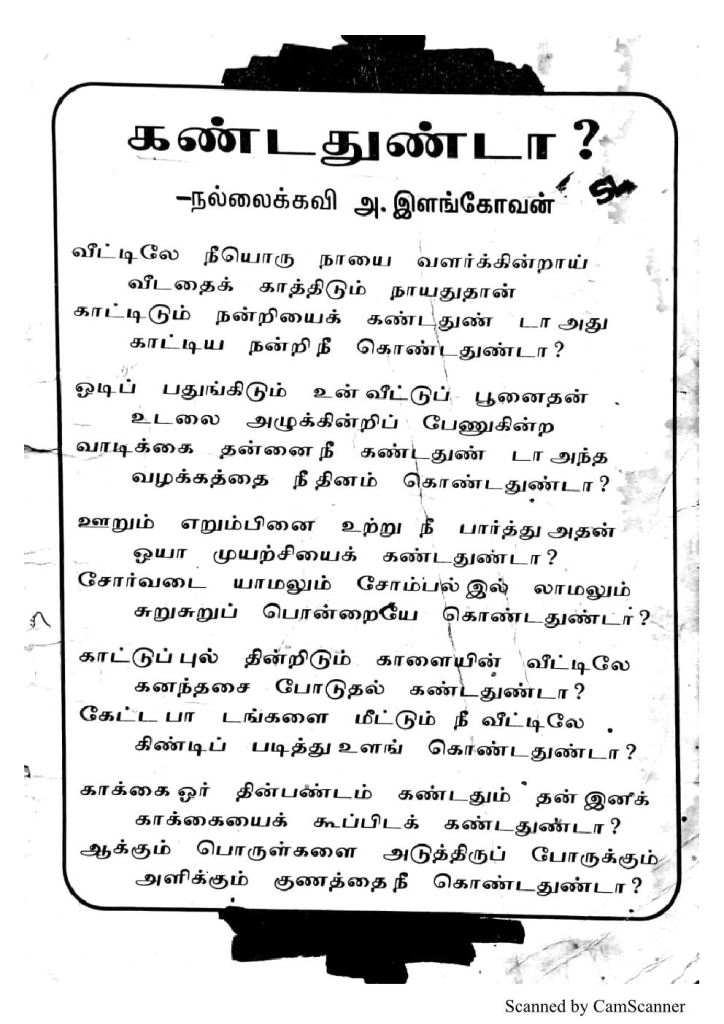 கண்டதுண்டா ?
-நல்லைக்கவி அ. இளங்கோவன்
வீட்டிலே நீயொரு நாயை வளர்க்கின்றாய்
வீடதைக் காத்திடும் நாயதுதான்
காட்டிடும் நன்றியைக் கண்டதுண் டா அது
காட்டிய நன்றி நீ கொண்டதுண்டா ?
ஓடிப் பதுங்கிடும் உன் வீட்டுப் பூனைதன்
உடலை அழுக்கின்றிப் பேணுகின்ற
வாடிக்கை தன்னை நீ கண்டதுண் டா அந்த
வழக்கத்தை நீ தினம் கொண்டதுண்டா ?
ஊறும் எறும்பினை உற்று நீ பார்த்து அதன்
ஓயா முயற்சியைக் கண்டதுண்டா ?
சோர்வடை யாமலும் சோம்பல் இல் லாமலும்
சுறுசுறுப் பொன்றையே கொண்டதுண்டா ?
காட்டுப் புல் தின்றிடும் காளையின் வீட்டிலே
கனந்தசை போடுதல் கண்டதுண்டா ?
கேட்ட பா டங்களை மீட்டும் நீ வீட்டிலே
கிண்டிப் படித்து உளங் கொண்டதுண்டா ?
காக்கை ஓர் தின்பண்டம் கண்டதும் தன் இனக்
காக்கையைக் கூப்பிடக் கண்டதுண்டா ?
ஆக்கும் பொருள்களை அடுத்திருப் போருக்கும்
அளிக்கும் குணத்தை நீ கொண்டதுண்டா ?
Scanned by CamScanner